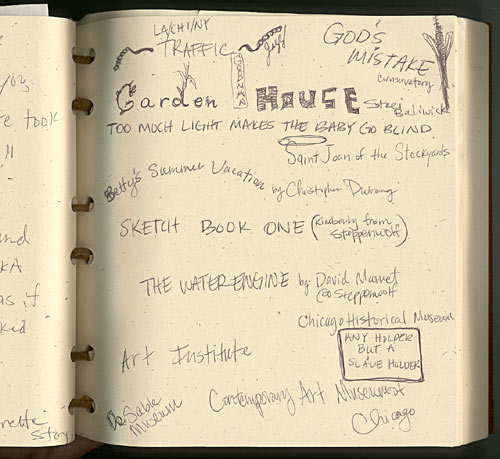 you
e took
"
and
KA
as if
ked
rette
story
LA/CHI/NY
TRAFFIC
GOD'S
MISTAKE
Conservatory
Garden
HOUSE
Stage
Baliwick
TOO MUCH LIGHT MAKES THE BABY GO BLIND
Saint Joan of the Stockyards
Betty's Summer Vacation by Christopher Durang
SKETCH BOOK ONE (Kimberly from
Steppenwolf)
THE WATER ENGINE by David Mamet
@ Steppenwolf
Chicago Historical Museum
ANY HOLDER
BUT A
SLAVE HOLDER
Art Institute
DuSable
Museum
Contemporary Art Museum of
Chicago